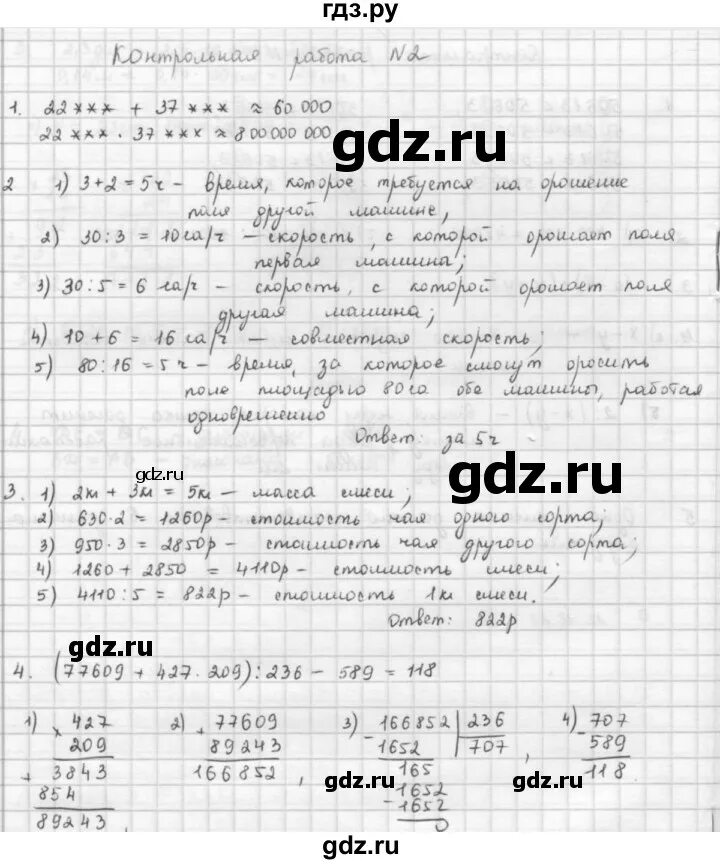 гдз.ру
Контрольная работа №2
1. 22*** + 37*** ≈ 60 000
22*** · 37*** ≈ 800 000 000
gdz.ru
2 1) 3+2=5ч – время, которое требуется на орошение
поля другой машине,
2) 30:3 = 10га/ч – скорость, с которой орошает поля
первая машина;
3) 30:5 = 6 га/ч – скорость, с которой орошает поля
другая машина;
4) 10+6 = 16 га/ч – совместная скорость;
5) 80:16 = 5ч – время, за которое смогут оросить
поле площадью 80га обе машины, работая
одновременно
Ответ: за 5ч
gdz.ru
gdz.ru
3. 1) 2кг + 3кг = 5кг – масса смеси;
2) 630·2 = 1260р – стоимость чая одного сорта;
3) 950·3 = 2850р – стоимость чая другого сорта;
4) 1260 + 2850 = 4110р – стоимость смеси;
5) 4110:5 = 822р – стоимость 1кг смеси.
Ответ: 822р
gdz.ru
4. (77609 + 427·209):236 – 589 = 118
1) × 427
209
+ 3843
854
89243
2) + 77609
89243
166852,
3) - 166852 | 236
1652 707,
165
- 1652
- 1652
0
4) - 707
589
118.
gdz.ru
gdz.ru
gdz.ru